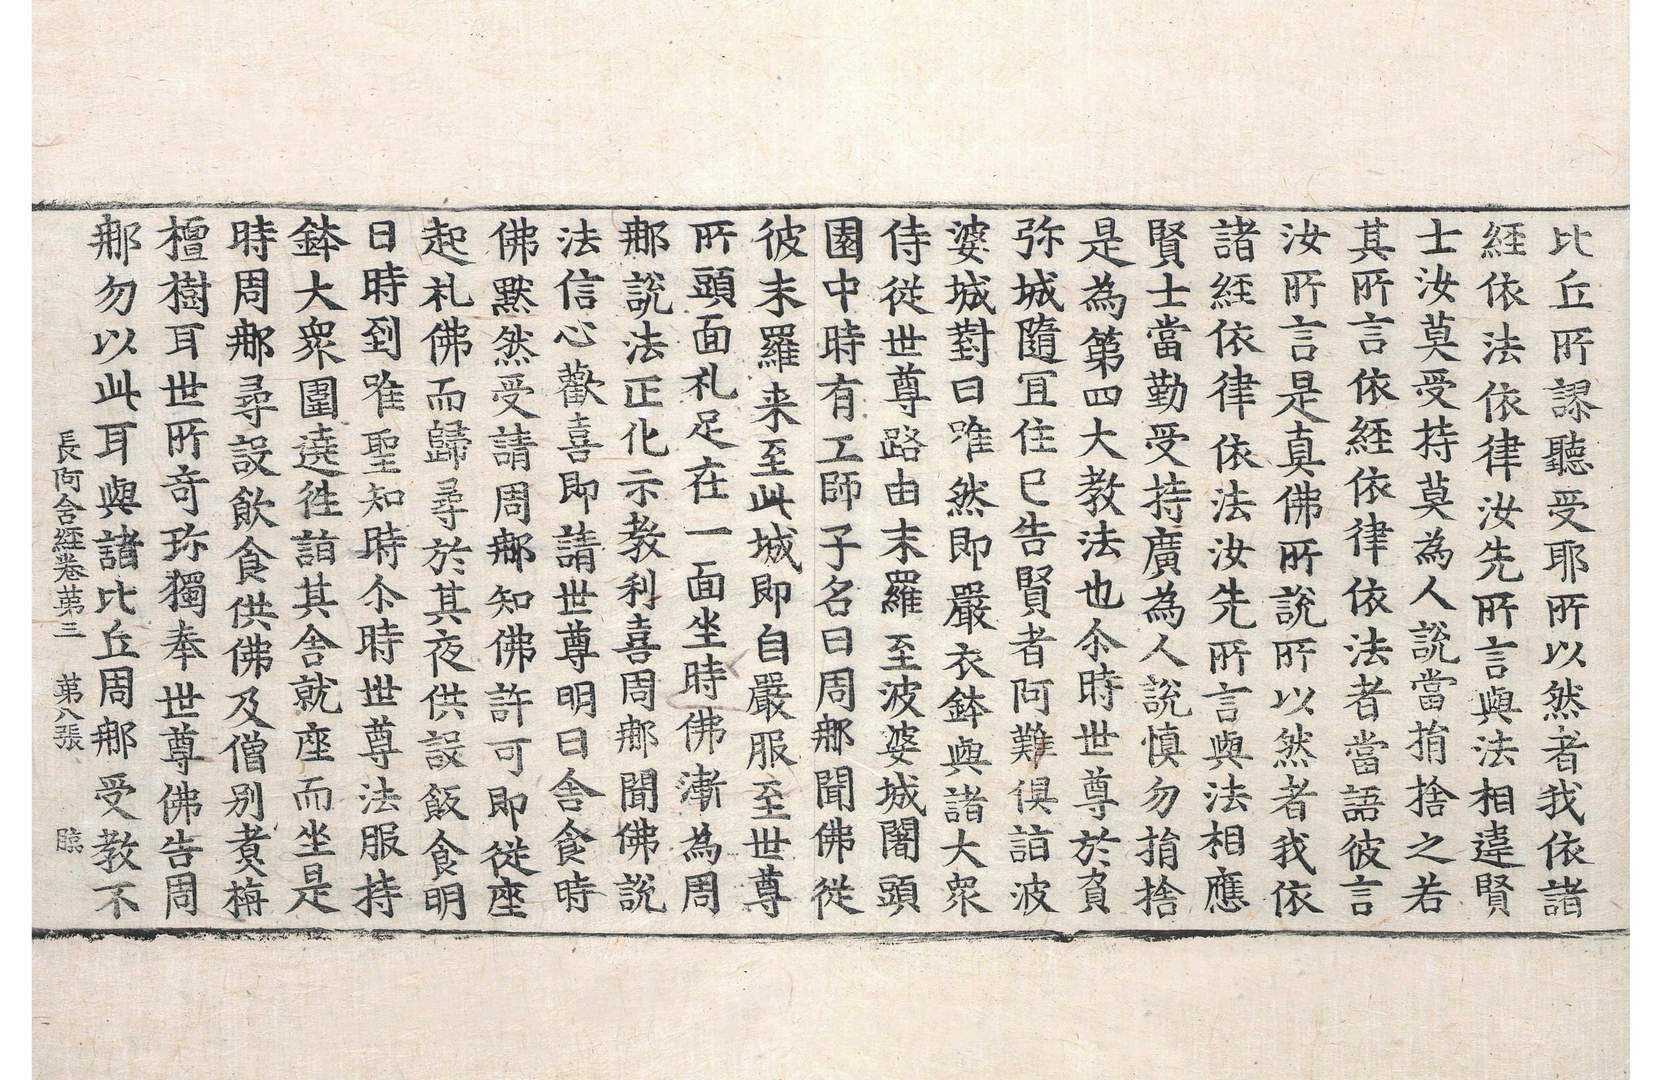 比丘所謬聽受耶所以然者我依諸
經依法依律汝先所言與法相違賢
士汝莫受持莫為人說當捐捨之若
其所言依經依律依法者當語彼言
汝所言是真佛所說所以然者我依
諸經依律依法汝先所言與法相應
賢士當勤受持廣為人說慎勿捐捨
是為第四大教法也尒時世尊於負
弥城隨冝住已告賢者阿難俱詣波
婆城對曰唯然即嚴衣鉢與諸大衆
侍從世尊路由末羅至波婆城闍頭
園中時有工師子名曰周那聞佛從
彼末羅来至此城即自嚴服至世尊
所頭面礼足在一面坐時佛漸為周
那說法正化示教利喜周那聞佛說
法信心歡喜即請世尊明日舍食時
佛默然受請周那知佛許可即從座
起礼佛而歸尋於其夜供設飯食明
日時到唯聖知時尒時世尊法服持
鉢大衆圍遶徃詣其舍就座而坐是
時周那尋設飲食供佛及僧別煮栴
檀樹耳世所奇珎獨奉世尊佛告周
那勿以此耳與諸比丘周那受教不
長阿含經卷第三 第八張 臨